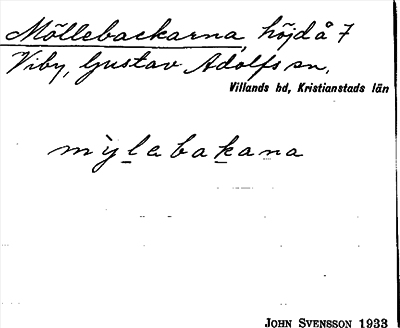 Möllebackarna, höjd å 7
Viby, Gustav Adolfs sn,
Villands hd, Kristianstads län
mỳlebakana
JOHN SVENSSON 1933